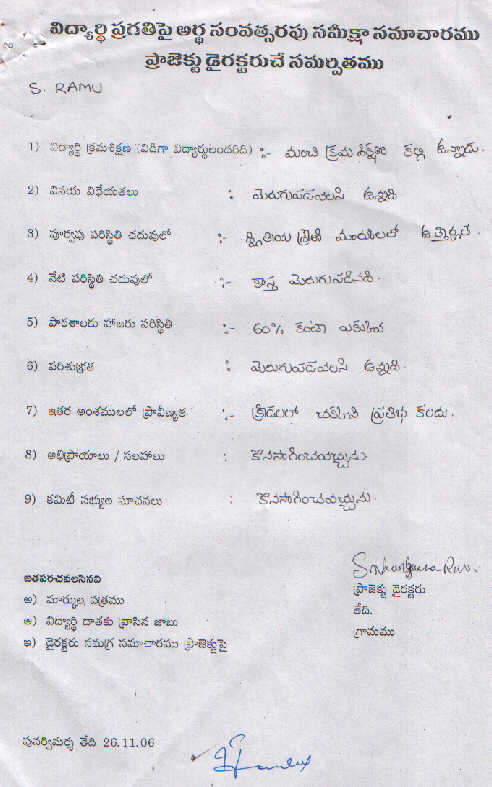 విద్యార్థి ప్రగతిపై అర్థ సంవత్సరపు సమీక్షా సమాచారము
ప్రాజెక్టు డైరక్టరుచే సమర్పితము
S. RAMU
1) విద్యార్థి క్రమశిక్షణ (విడిగా విద్యార్థులందరిది) :- మంచి క్రమ శిక్షణ కల్గి ఉన్నాడు.
2) వినయ విధేయతలు : మెరుగుపడవలసి ఉన్నది
3) పూర్వపు పరిస్థితి చదువులో :- ద్వితీయ శ్రేణి మార్కులలో
4) నేటి పరిస్థితి చదువులో :- కాస్త మెరుగుపడినది.
5) పాఠశాలకు హాజరు పరిస్థితి :- 60% కంటా ఎక్కువ
6) పరిశుభ్రత : మెరుగుపడవలసి ఉన్నది.
7) ఇతర అంశములలో ప్రావీణ్యత :- క్రీడలలో చక్కని ప్రతిభ కలదు.
8) అభిప్రాయాలు / సలహాలు : కొనసాగించవచ్చును
9) కమిటీ సభ్యుల సూచనలు : కొనసాగించవచ్చును.
జతపరచవలసినవి
అ) మార్కుల పత్రము
ఆ) విద్యార్థి దాతకు వ్రాసిన జాబు
ఇ) డైరక్టరు సమగ్ర సమాచారము ప్రాజెక్టుపై
ప్రాజెక్టు డైరక్టరు
తేది.
గ్రామము
పునర్విమర్శ తేది 26.11.06